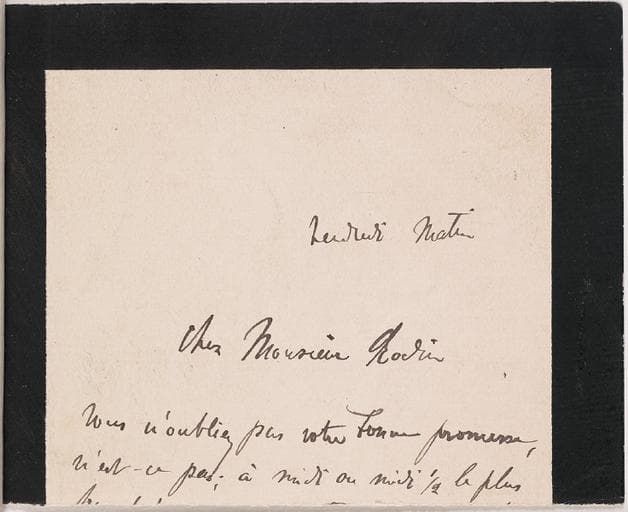 Vendredi Matin
Cher Monsieur Rodin
Vous n'oubliez pas votre bonne promesse,
n'est-ce pas; à midi ou midi 1/2 le plus